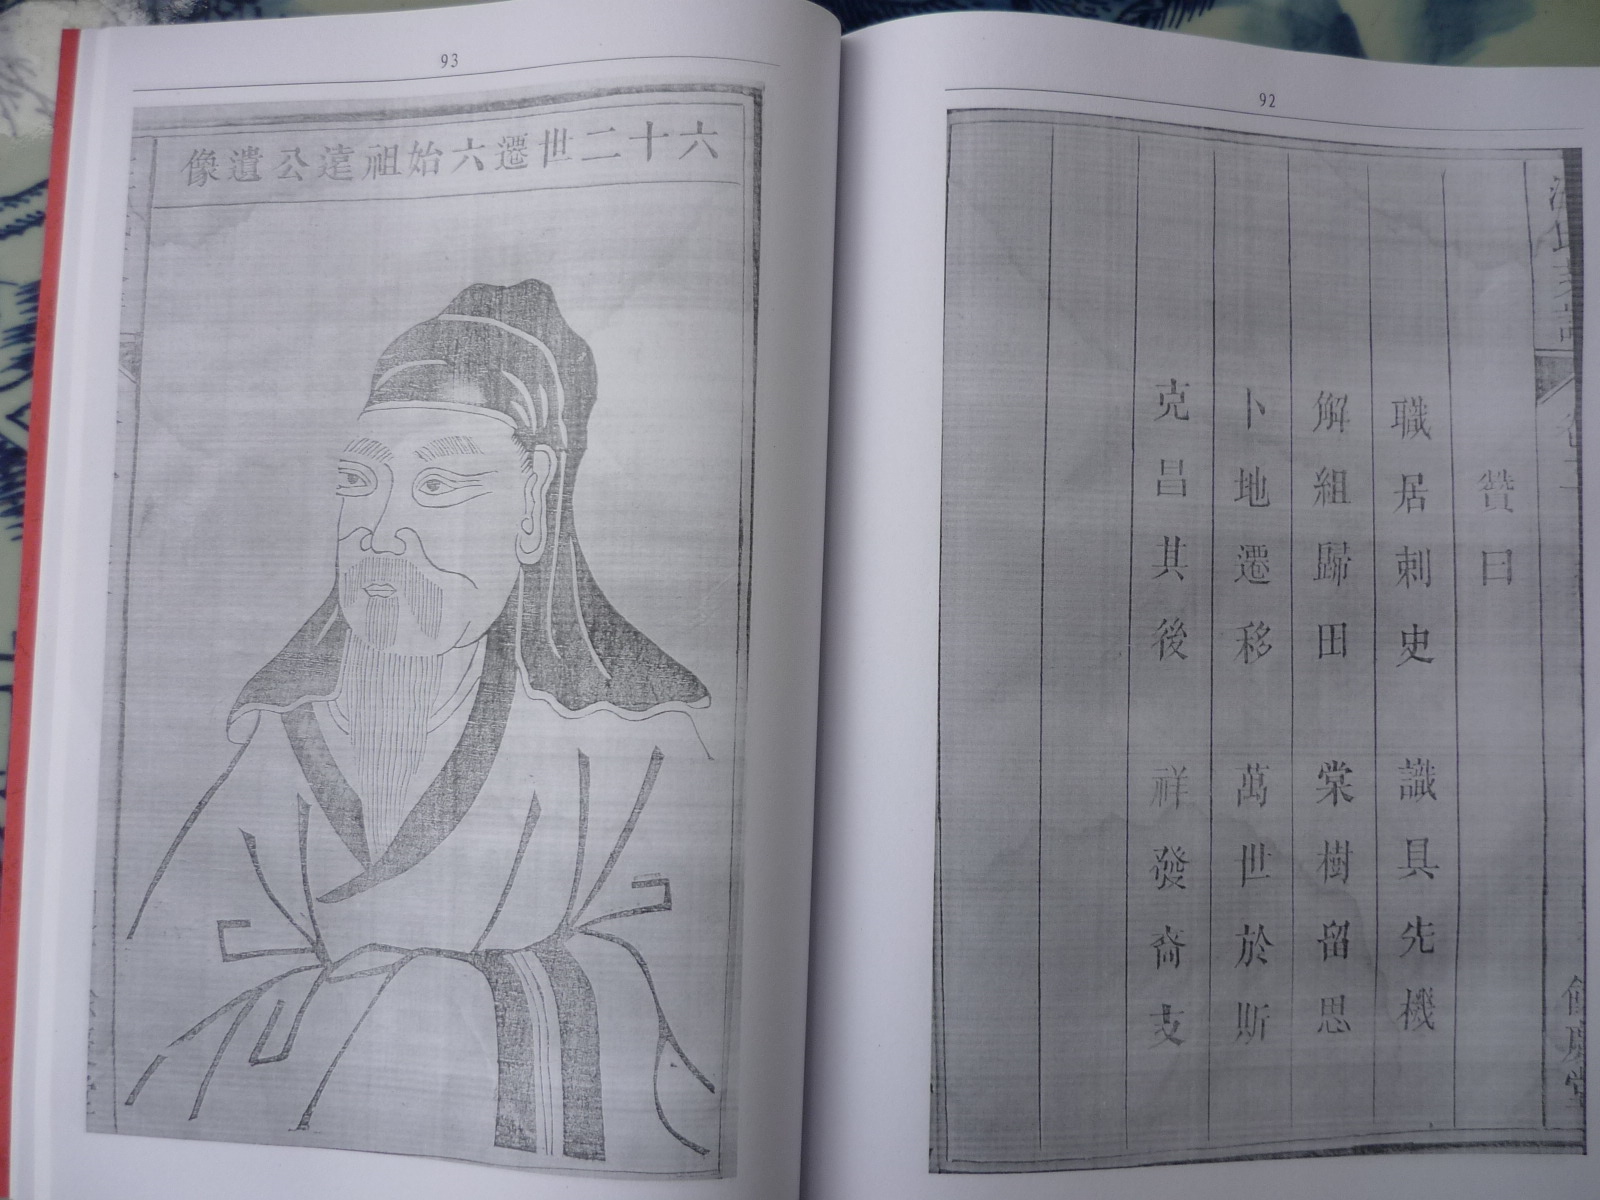 92
贊曰
職居刺史 識具先機
解組歸田 棠樹留思
卜地遷移 萬世於斯
克昌其後 祥發裔支
93
六十二世遷六始祖達公遺像